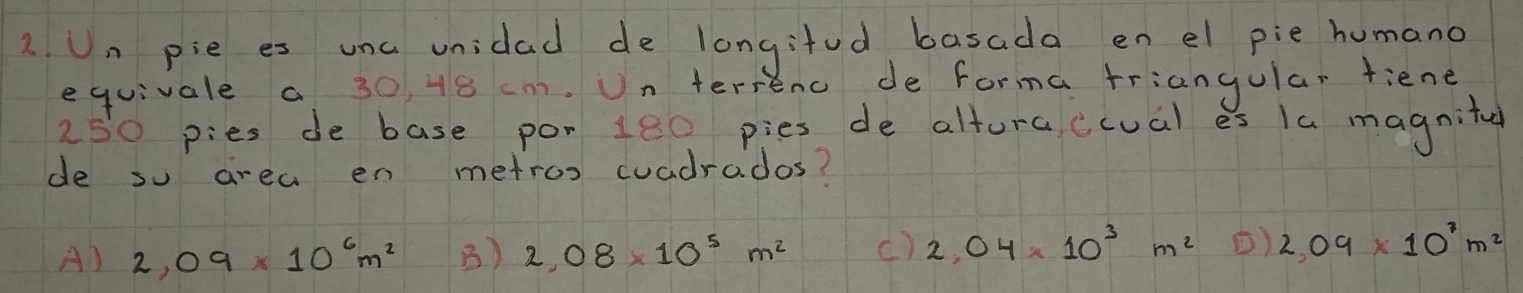 2. Un pie es una unidad de longitud basada en el pie humano
equivale a 30,48 cm. Un terreno de forma triangular tiene
250 pies de base por 180 pies de altura, ¿cuál es la magnitud
de su área en metros cuadrados?
A) 2,09 × 10⁶ m² B) 2,08 × 10⁵ m² C) 2,04 × 10³ m² D) 2,09 × 10³ m²